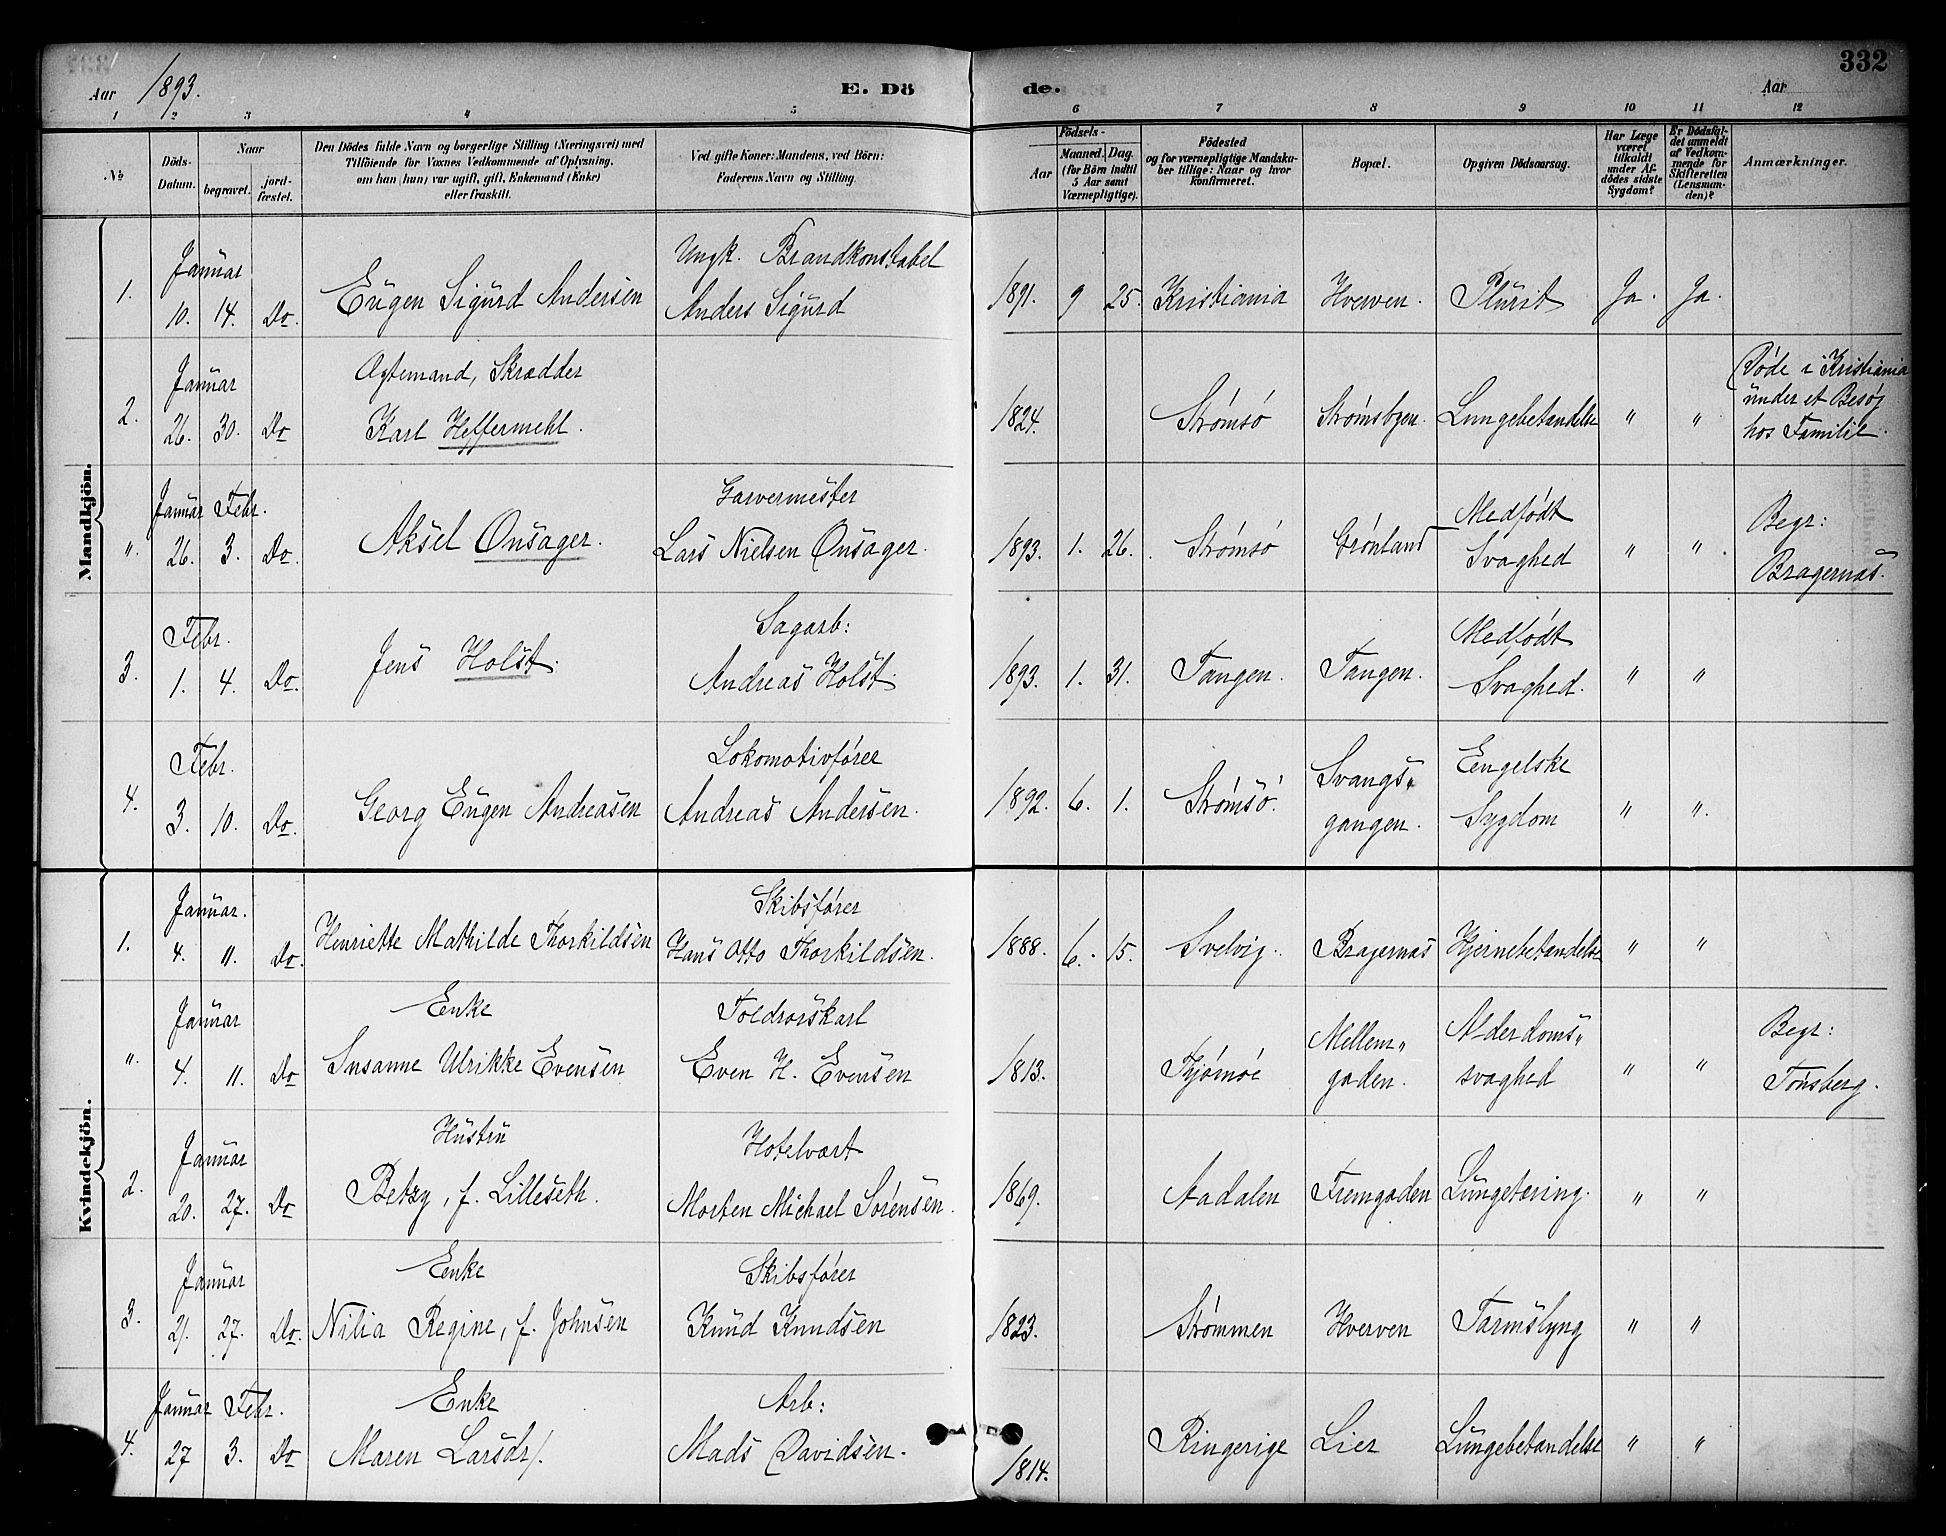 332
Aar 1893. E. Dö de. Aar
1 2 3 4 5 6 7 8 9 10 11 12
No
Döds-Datum.
Naar
begravet.
jordfæstet.
Den Dödes fulde Navn og borgerlige Stilling (Næringsvei) med
Tilföiende for Voxnes Vedkommende af Oplysning,
om han (hun) var ugift, gift, Enkemand (Enke)
eller fraskilt.
Ved gifte Koner: Mandens, ved Börn:
Faderens Navn og Stilling.
Födsels-
Aar
Maaned. Dag.
(for Börn indtil
5 Aar samt
Værnepligtige).
Födested
og for værnepligtige Mandskaber
tillige: Naar og hvor
konfirmeret.
Bopæl.
Opgiven Dödsaarsag.
Har Læge
været
tilkaldt
under Afdödes
sidste
Sygdom?
Er Dödsfaldet
anmeldt
af Vedkommende
for
Skifteretten
(Lensmanden)?
Anmærkninger.
Mandkjön.
Januar Ungk. Brandkonstabel
1. 10. 14. Do. Eugen Sigurd Andersen Anders Sigurd 1891. 9 25. Kristiania Hverven. Plurit Ja. Ja.
Januar Ægtemand, Skrædder Døde i Kristiania
under et Besøg
2. 26. 30. Do Karl Heffermehl. 1824. Strømsø Strømsbyen. Lungebetændelse " " hos Familie.
Januar Febr. Garvermester Medfødt Begr:
". 26. 3. Do. Aksel Onsager. Lars Nielsen Onsager. 1893. 1. 26. Strømsø Grønland Svaghed " " Bragernæs.
Febr. Sagarb: Medfødt
3. 1. 4. Do. Jens Holst. Andreas Holst 1893. 1. 31. Tangen. Tangen. Svaghed. " "
Febr. Lokomotivfører Svangs" Eengelske
4. 3. 10. Do. Georg Eugen Andreasen Andreas Andersen. 1892. 6. 1. Strømsø. gangen. Sygdom " ".
Kvindekjön.
Januar. Skibsfører
1. 4. 11. Do. Henriette Mathilde Thorkildsen Hans Otto Thorkildsen. 1888. 6. 15. Svelvig. Bragernæs Hjernebetændelse " "
Januar Enke Toldrorskarl Mellem" Alderdoms" Begr:
". 4. 11. Do Susanne Ulrikke Evensen Even H. Evensen 1813. Tjømøe gaden. svaghed " " Tønsberg.
Januar Hustru Hotelvært
2. 20. 27. Do Betzy, f. Lilleseth. Morten Michael Sørensen. 1869. Aadalen Fremgaden Lungetæring. " "
Januar Enke Skibsfører
3. 21. 27. Do. Nilia Regine, f. Johnsen Knud Knudsen 1823. Strømmen Hverven Tarmslyng " "
Januar Febr. Enke Arb:
4. 27 3. Do Maren Larsdr/. Mads Davidsen. 1814. Ringerige Lier Lungebetændelse " "